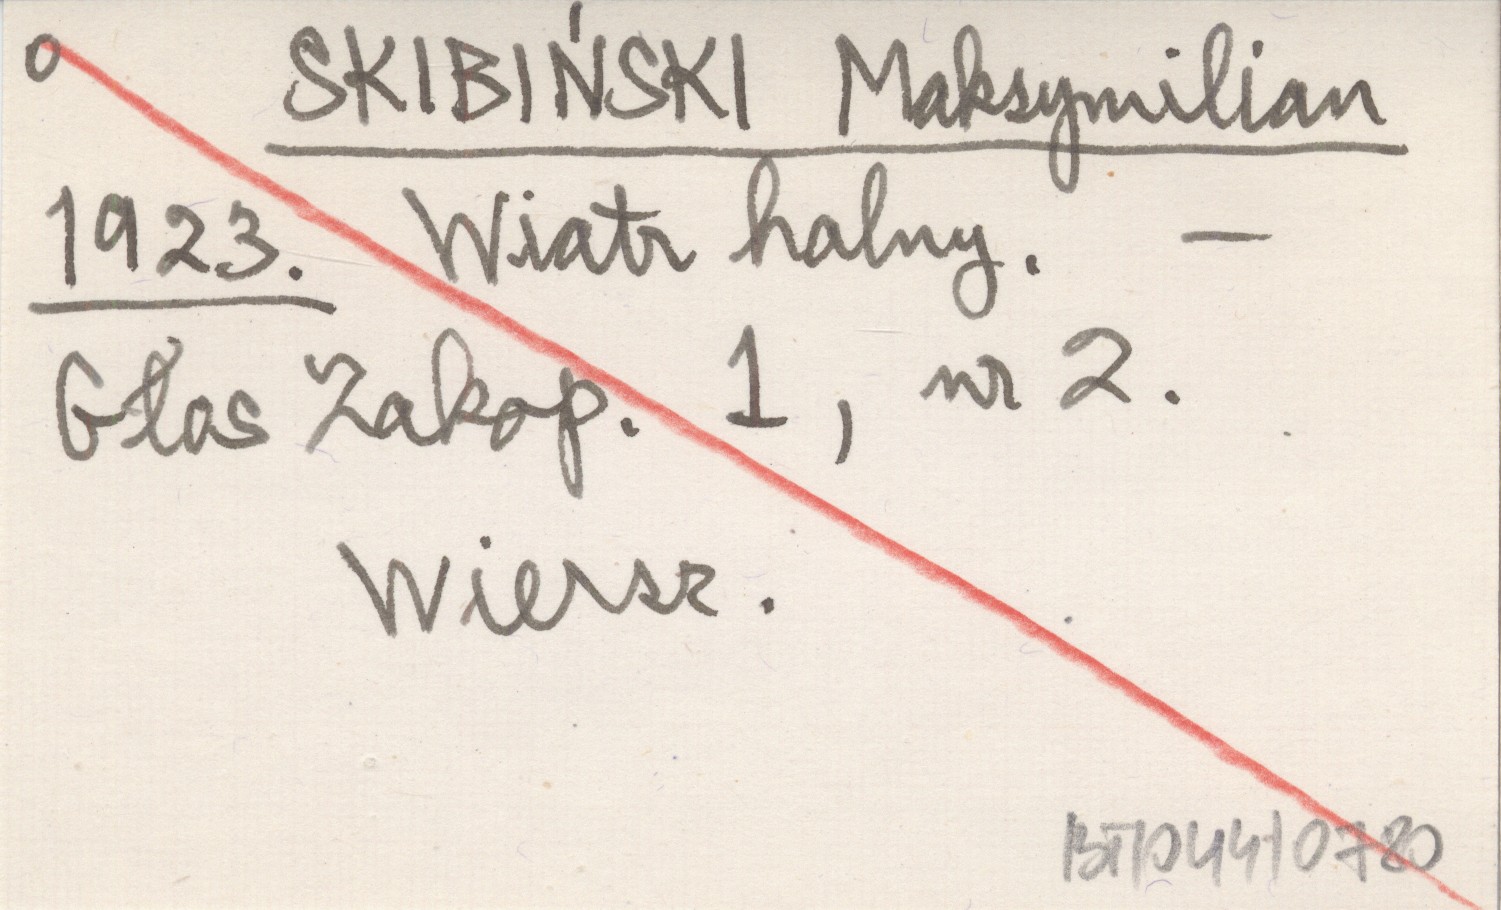 o SKIBIŃSKI Maksymilian
1923. Wiatr halny. —
Głos Zakop. 1, nr 2.
Wiersz.
BT/044/0780